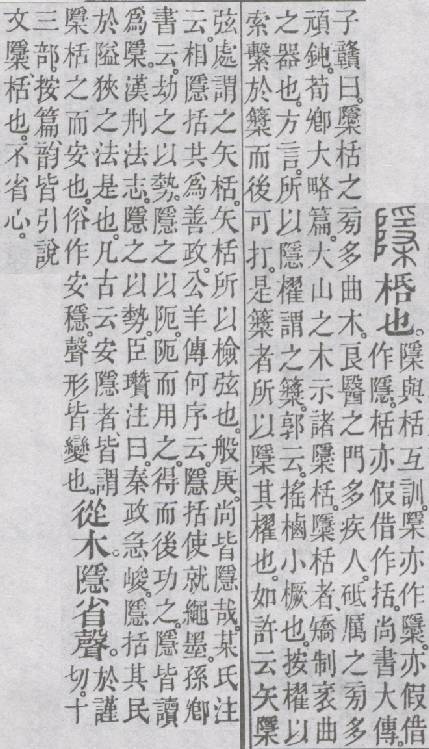 檃
桰也。
檃與桰互訓。檃亦作櫽。亦假借
作隱。桰亦假借作括。尚書大傳
子贛曰。檃桰之旁多曲木。良醫之門多疾人。砥厲之旁多
頑鈍。荀卿大略篇。大山之木示諸檃桰。檃桰者、矯制衺曲
之器也。方言。所以隱櫂謂之䉃。郭云。搖樐小橛也。按櫂以
索繫於䉃而後可打。是䉃者所以檃其櫂也。如許云矢檃
弦處謂之矢桰。矢桰所以檢弦也。般庚。尚皆隱哉。某氏注
云。相隱括共爲善政。公羊傳何序云。隱括使就繩墨。孫卿
書云。劫之以勢。隱之以阨。阨而用之。得而後功之。隱皆讀
爲檃。漢刑法志。隱之以勢。臣瓚注曰。秦政急峻。隱括其民
於隘狹之法是也。凡古云安隱者皆謂
檃桰之而安也。俗作安穩。聲形皆變也。
從木。隱省聲。
於謹
切。十
三部。按篇、韵皆引說
文檃、桰也。不省心。